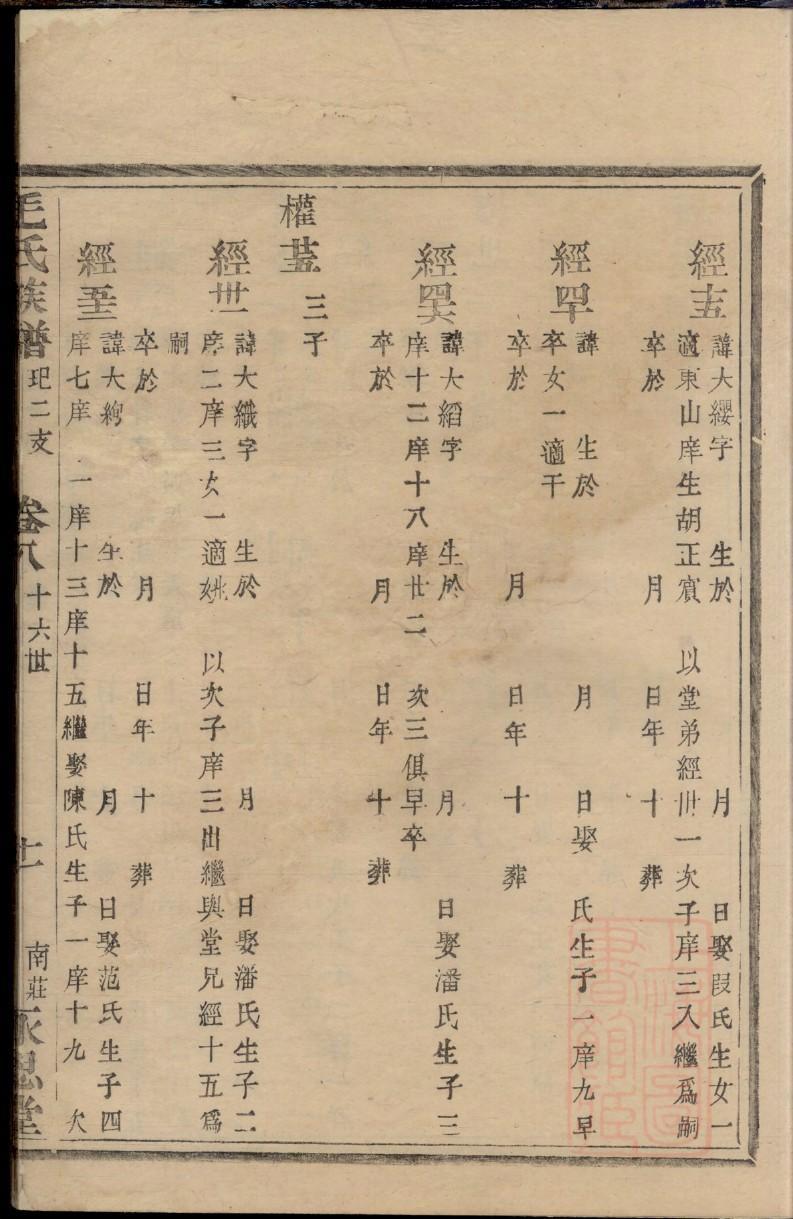 經十五
諱大纓字 生於 月 日娶段氏生女一
適東山庠生胡正賓 以堂弟經卅一次子庠三入繼爲嗣
卒於 月 日年 十 葬
經四十
諱 生於 月 日娶 氏生子一庠九早
卒女一適干
卒於 月 日年 十 葬
經四六
諱大縚字 生於 月 日娶潘氏生子三
庠十二庠十八庠廿二 次三俱早卒
卒於 月 日年 十 葬
權 三子
經卅一
諱大織字 生於 月 日娶潘氏生子二
庠二庠三女一適姚 以次子庠三出繼與堂兄經十五爲
嗣
卒於 月 日年 十 葬
經五十三
諱大絢 生於 月 日娶范氏生子四
庠七庠 一庠十三庠十五繼娶陳氏生子一庠十九 次
毛氏族譜 玘二支 卷八 十六世 十一 南莊永思堂